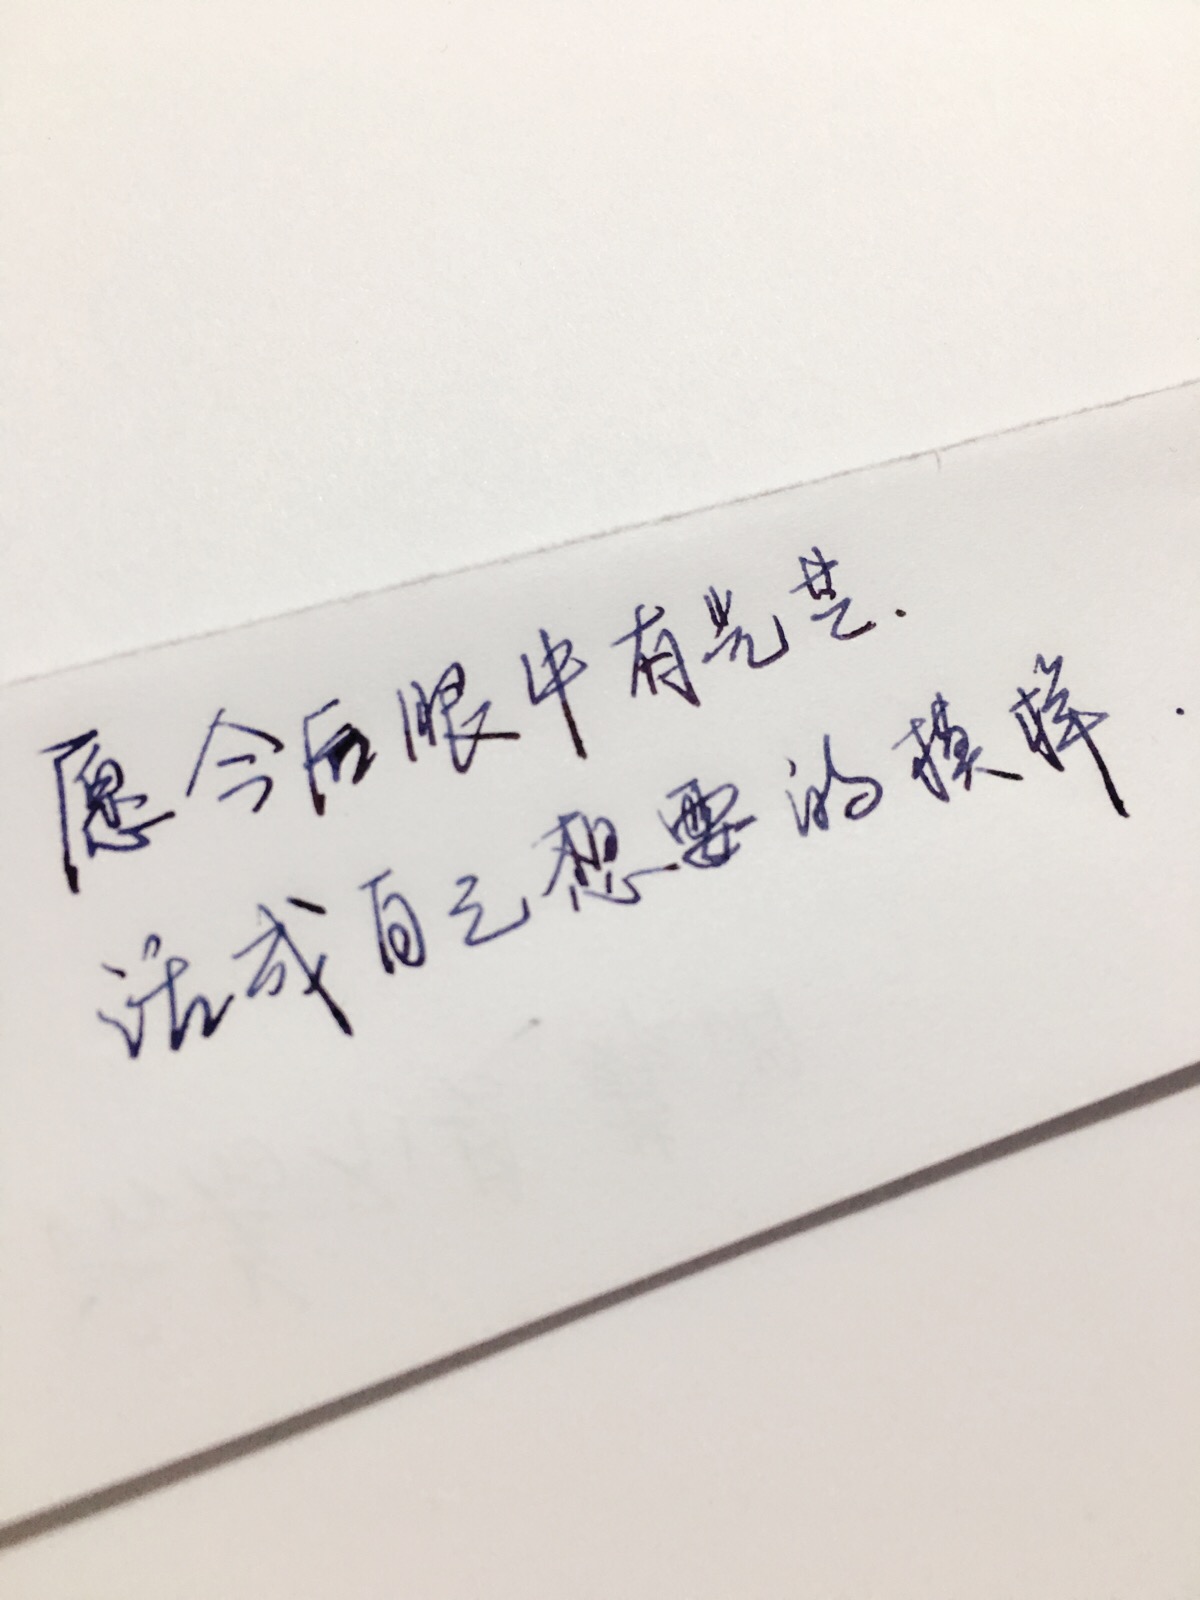 愿今后眼中有光芒.
活成自己想要的模样.